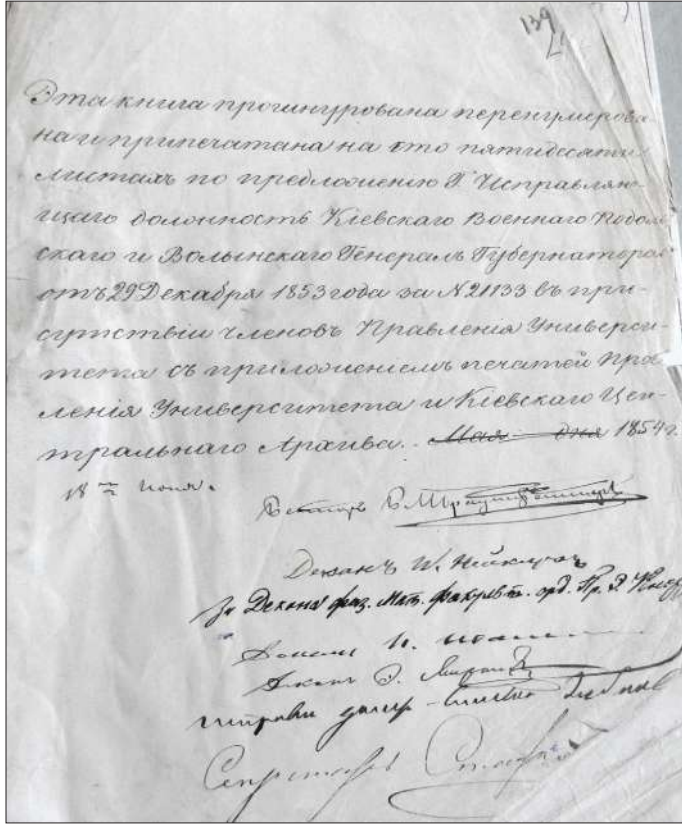 139
Эта книга прошнурована перенумерова
на и припечатана на сто пятидесяти
листахъ по предложенію Г. Исправляю-
щаго должность Кіевскаго Военнаго Подоль
скаго и Волынскаго Генералъ Губернатора
отъ 29 Декабря 1853 года за № 21133 въ при-
сутствіи членовъ Правленія Универси-
тета съ приложеніемъ печатей Прав
ленія Университета и Кіевскаго Цен-
тральнаго Архива. Мая дня 1854 г.
18 Іюня.
Ректоръ
Деканъ
За Декана физ. Мат. факульт. орд. Пр. Э.
Деканъ
Деканъ
Секретарь